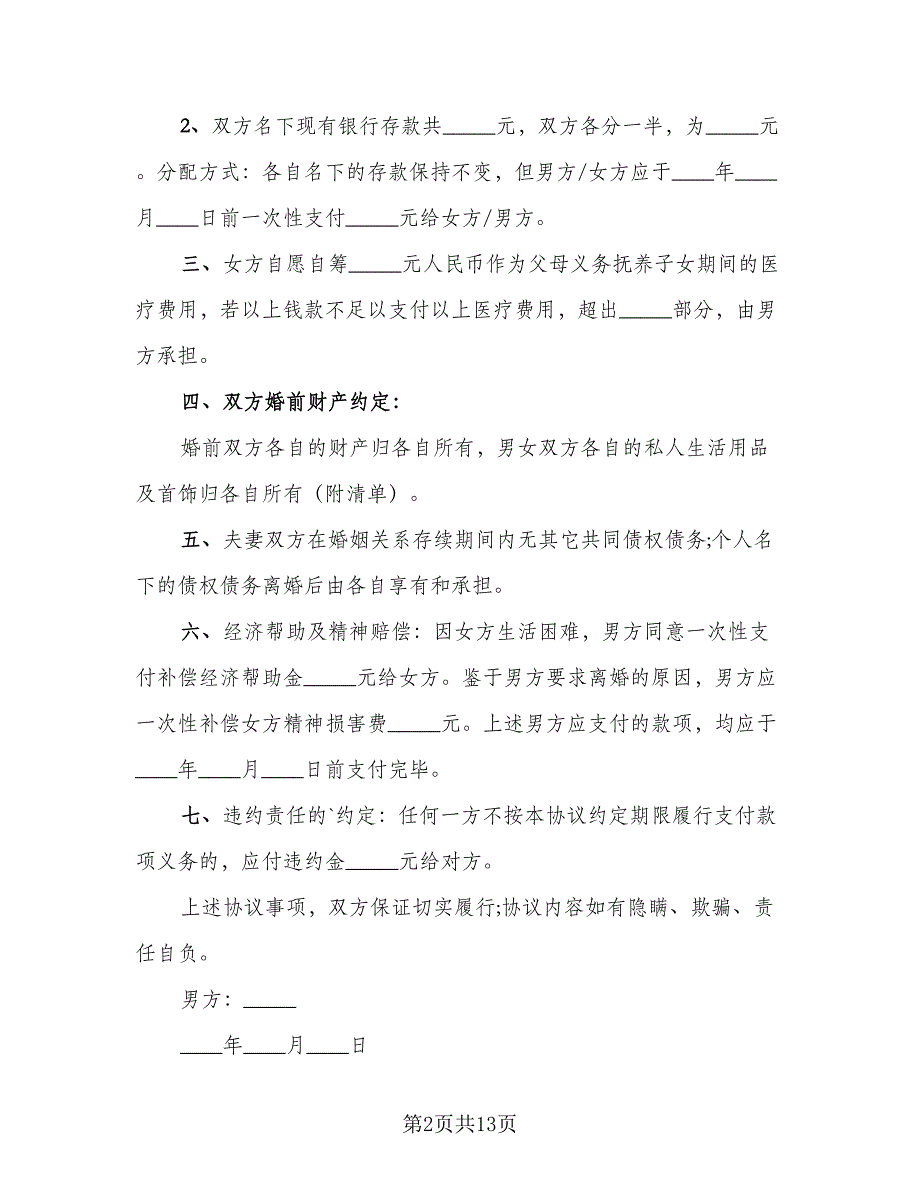 2、双方名下现有银行存款共_____元，双方各分一半，为_____元
。分配方式：各自名下的存款保持不变，但男方/女方应于____年____
月____日前一次性支付_____元给女方/男方。
三、女方自愿自筹_____元人民币作为父母义务抚养子女期间的医
疗费用，若以上钱款不足以支付以上医疗费用，超出_____部分，由男
方承担。
四、双方婚前财产约定：
婚前双方各自的财产归各自所有，男女双方各自的私人生活用品
及首饰归各自所有（附清单）。
五、夫妻双方在婚姻关系存续期间内无其它共同债权债务;个人名
下的债权债务离婚后由各自享有和承担。
六、经济帮助及精神赔偿：因女方生活困难，男方同意一次性支
付补偿经济帮助金_____元给女方。鉴于男方要求离婚的原因，男方应
一次性补偿女方精神损害费_____元。上述男方应支付的款项，均应于
____年____月____日前支付完毕。
七、违约责任的`约定：任何一方不按本协议约定期限履行支付款
项义务的，应付违约金_____元给对方。
上述协议事项，双方保证切实履行;协议内容如有隐瞒、欺骗、责
任自负。
男方：_____
____年____月____日
第2页共13页